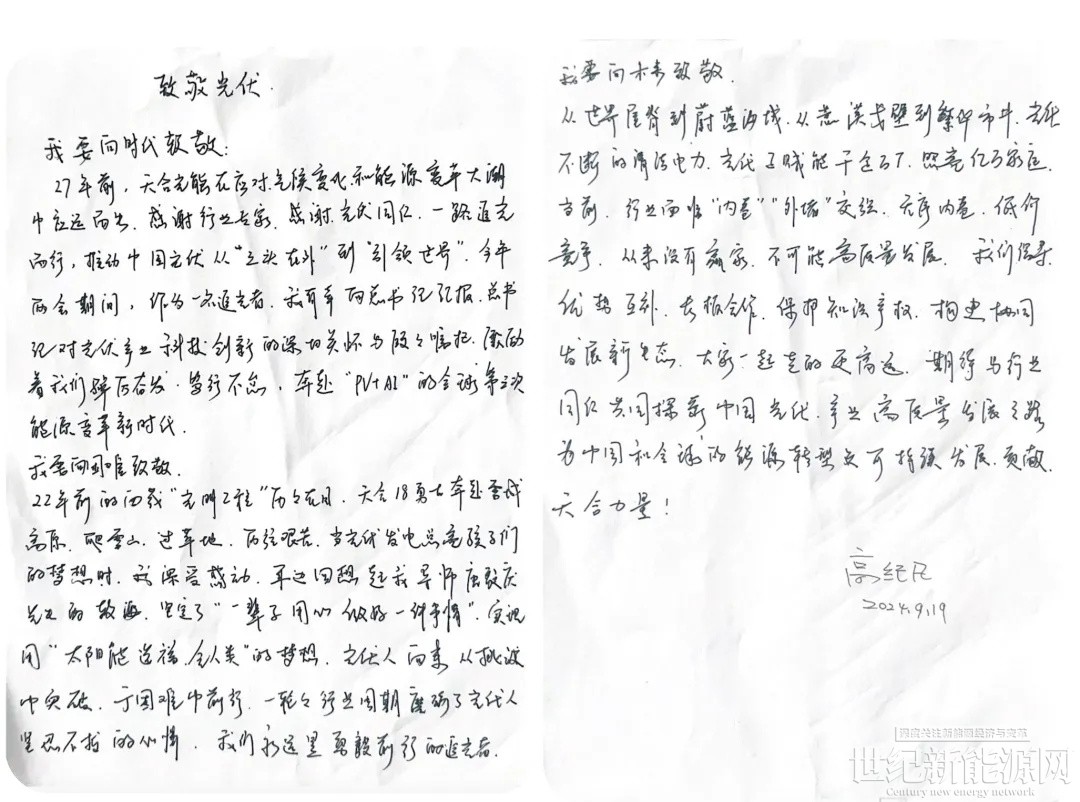 致敬光伏.
我要向时代致敬:
27年前,天合光能在应对气候变化和能源变革大潮
中应运而生,感谢行业专家,感谢光伏同仁,一路追光
而行,推动中国光伏从“三头在外”到“引领世界”.今年
两会期间,作为一名追光者,我有幸向总书记汇报,总书
记对光伏产业科技创新的深切关怀与殷殷嘱托,激励
着我们踔厉奋发.笃行不怠,奔赴“PV+AI”的全球第三次
能源变革新时代.
我要向艰难致敬.
22年前的西藏“光明工程”历历在目,天合18勇士奔赴雪域
高原,爬雪山,过草地,历经艰苦,当光伏发电点亮孩子们
的梦想时,我深受感动,耳边回想起我导师唐敖庆
先生的教诲,坚定了“一辈子用心做好一件事情”,实现
用“太阳能造福全人类”的梦想.光伏人向来从挑战
中突破,于困难中前行,一轮轮行业周期磨砺了光伏人
坚忍不拔的心性,我们永远是勇毅前行的追光者.
我要向未来致敬.
从世界屋脊到蔚蓝海域,从荒漠戈壁到繁华市井,光伏
不断的清洁电力,光伏了赋能千仓万下,照亮亿万家庭
当前,行业面临“内卷”“外堵”交织,无序内卷,低价
竞争,从来没有赢家,不可能高质量发展.我们倡导
优势互补,长板合作,保护知识产权,构建协同
发展新生态,大家一起走的更高远.期待与行业
同仁共同探索中国光伏产业高质量发展之路
为中国和全球的能源转型及可持续发展,贡献
天合力量!
高纪凡
2024.9.19
深度关注新能源经济与变革
世纪新能源网
Century new energy network